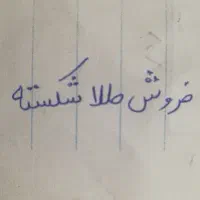 فروش طلا شکسته